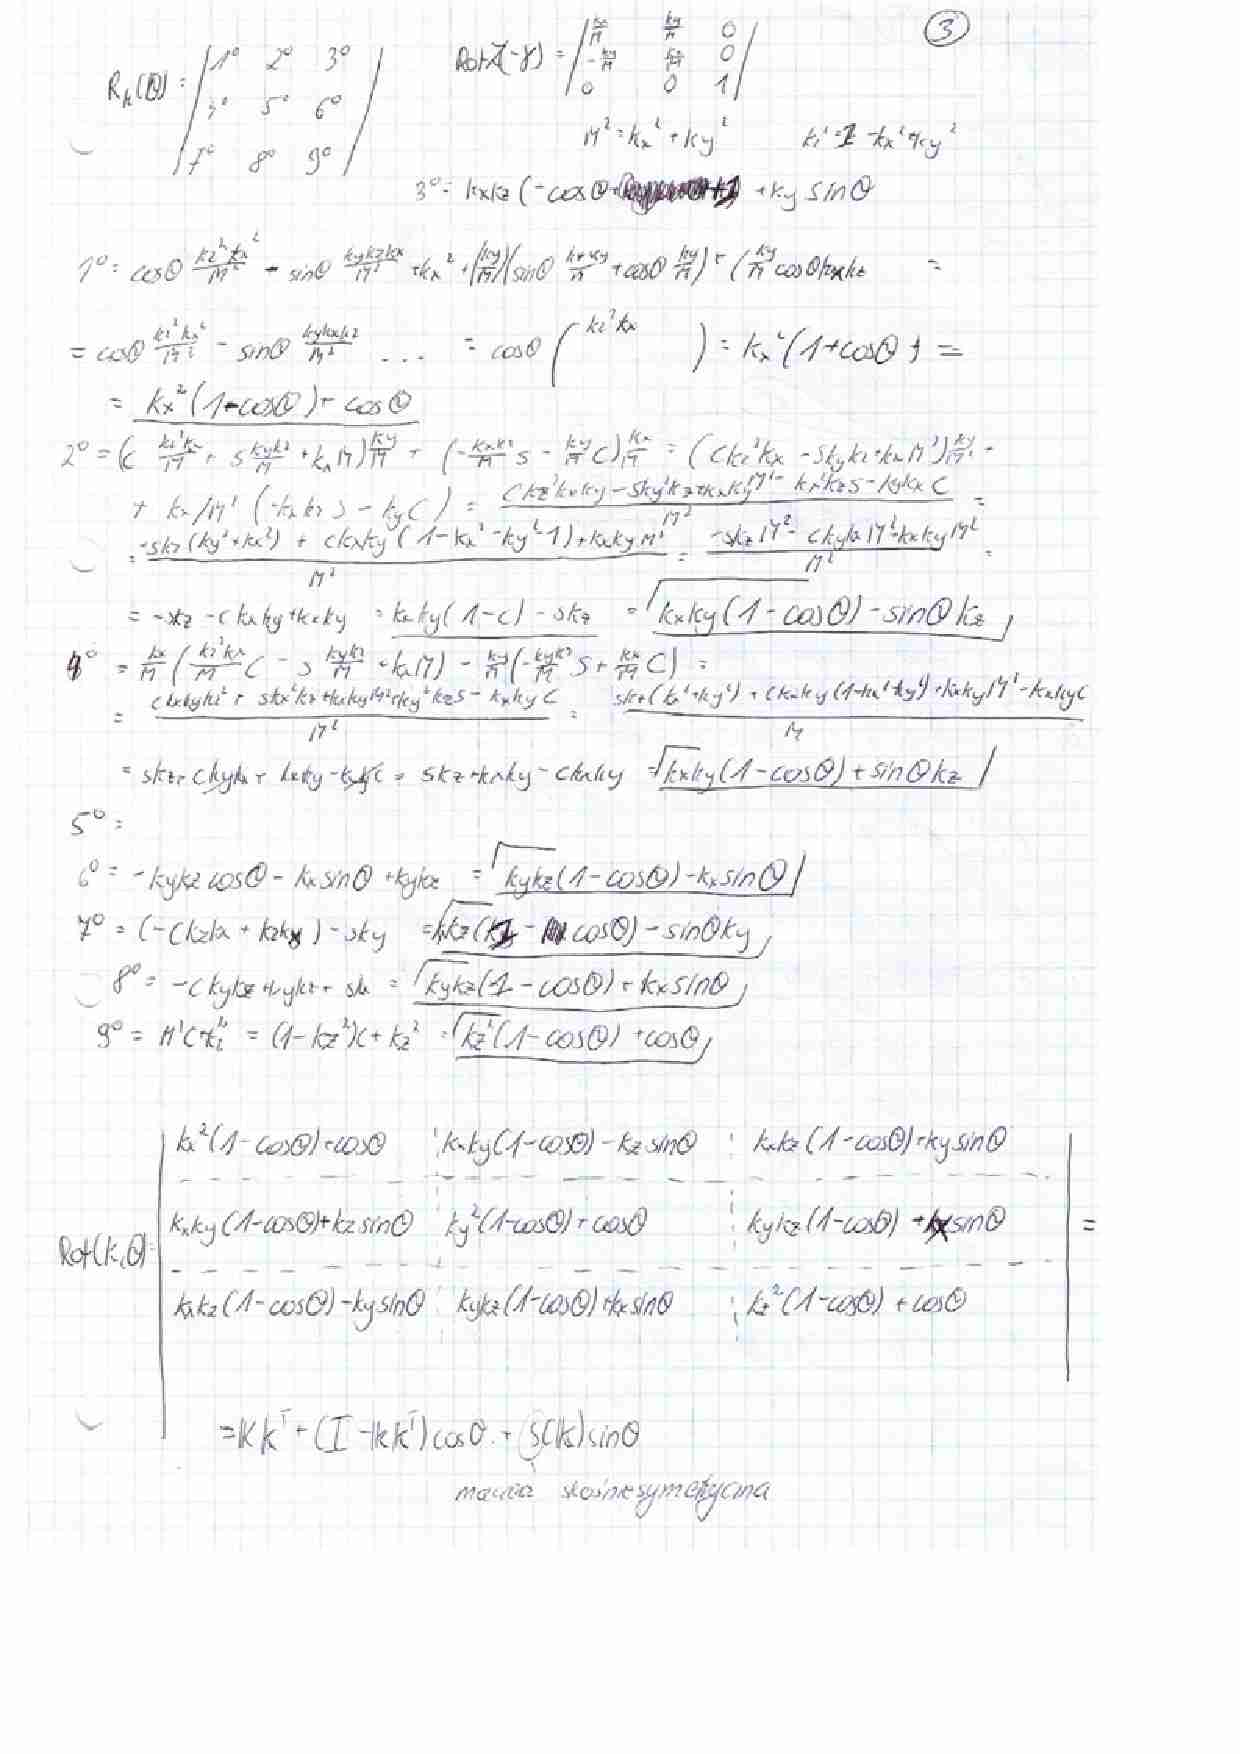 ③
R_k(Θ) = | 1° 2° 3° |
| 4° 5° 6° |
| 7° 8° 9° |
RotZ(-γ) = | kx/M ky/M 0 |
| -ky/M kx/M 0 |
| 0 0 1 |
M² = kx² + ky² kz² = 1 - kx² + ky²
3° = kxkz (-cosΘ + ky sinΘ
1° = cosΘ kz²kx²/M² - sinΘ kykzkx/M² + kx² + (ky/M)(sinΘ kxky/M + cosΘ ky/M) + (ky/M cosΘ kxkz =
= cosΘ kz²kx²/M² - sinΘ kykxkz/M² ... = cosΘ ( kz²kx ) = kx²(1+cosΘ) =
= kx²(1-cosΘ) + cosΘ
2° = (c kz²kx/M + s kykz/M + kxM) ky/M + (-kxkz/M s - ky/M c) kx/M = (ckz²kx - skykz + kxM²) ky/M² -
+ kx/M² (-kxkzs - kyc) = (ckz²kxky - sky²kz + kxkyM² - kx²kzs - kykxc)/M² =
= (-skz(ky²+kx²) + ckxky(1-kx²-ky²-1) + kxkyM²)/M² = (-skzM² - ckykxM² + kxkyM²)/M² =
= -skz - ckxky + kxky = kxky(1-c) - skz = kxky(1-cosΘ) - sinΘkz
4° = kx/M (kz²kx/M c - s kykz/M + kxM) - ky/M (-kykz/M s + kx/M c) =
= (ckxkykz² + skx²kz + kxkyM² + ky²kzs - kxkyc)/M² = (skz(kx²+ky²) + ckxky(1-kx²-ky²) + kxkyM² - kxkyc)/M
= skz - ckykx + kxky - kykxc = skz + kxky - ckxky = kxky(1-cosΘ) + sinΘkz
5° =
6° = -kykz cosΘ - kx sinΘ + kykz = kykz(1-cosΘ) - kx sinΘ
7° = (-ckzkx + kzkx) - sky = kxkz(1 - cosΘ) - sinΘky
8° = -ckykz + kykz + skx = kykz(1-cosΘ) + kx sinΘ
9° = M²c + kz² = (1-kz²)c + kz² = kz²(1-cosΘ) + cosΘ
kx²(1-cosΘ)+cosΘ kxky(1-cosΘ) - kz sinΘ kxkz(1-cosΘ)+ky sinΘ
Rot(k,Θ) = kxky(1-cosΘ)+kz sinΘ ky²(1-cosΘ)+cosΘ kykz(1-cosΘ) + kx sinΘ =
kxkz(1-cosΘ)-ky sinΘ kykz(1-cosΘ)+kx sinΘ kz²(1-cosΘ) + cosΘ
= kkᵀ + (I - kkᵀ)cosΘ + S(k)sinΘ
macierz skośniesymetryczna